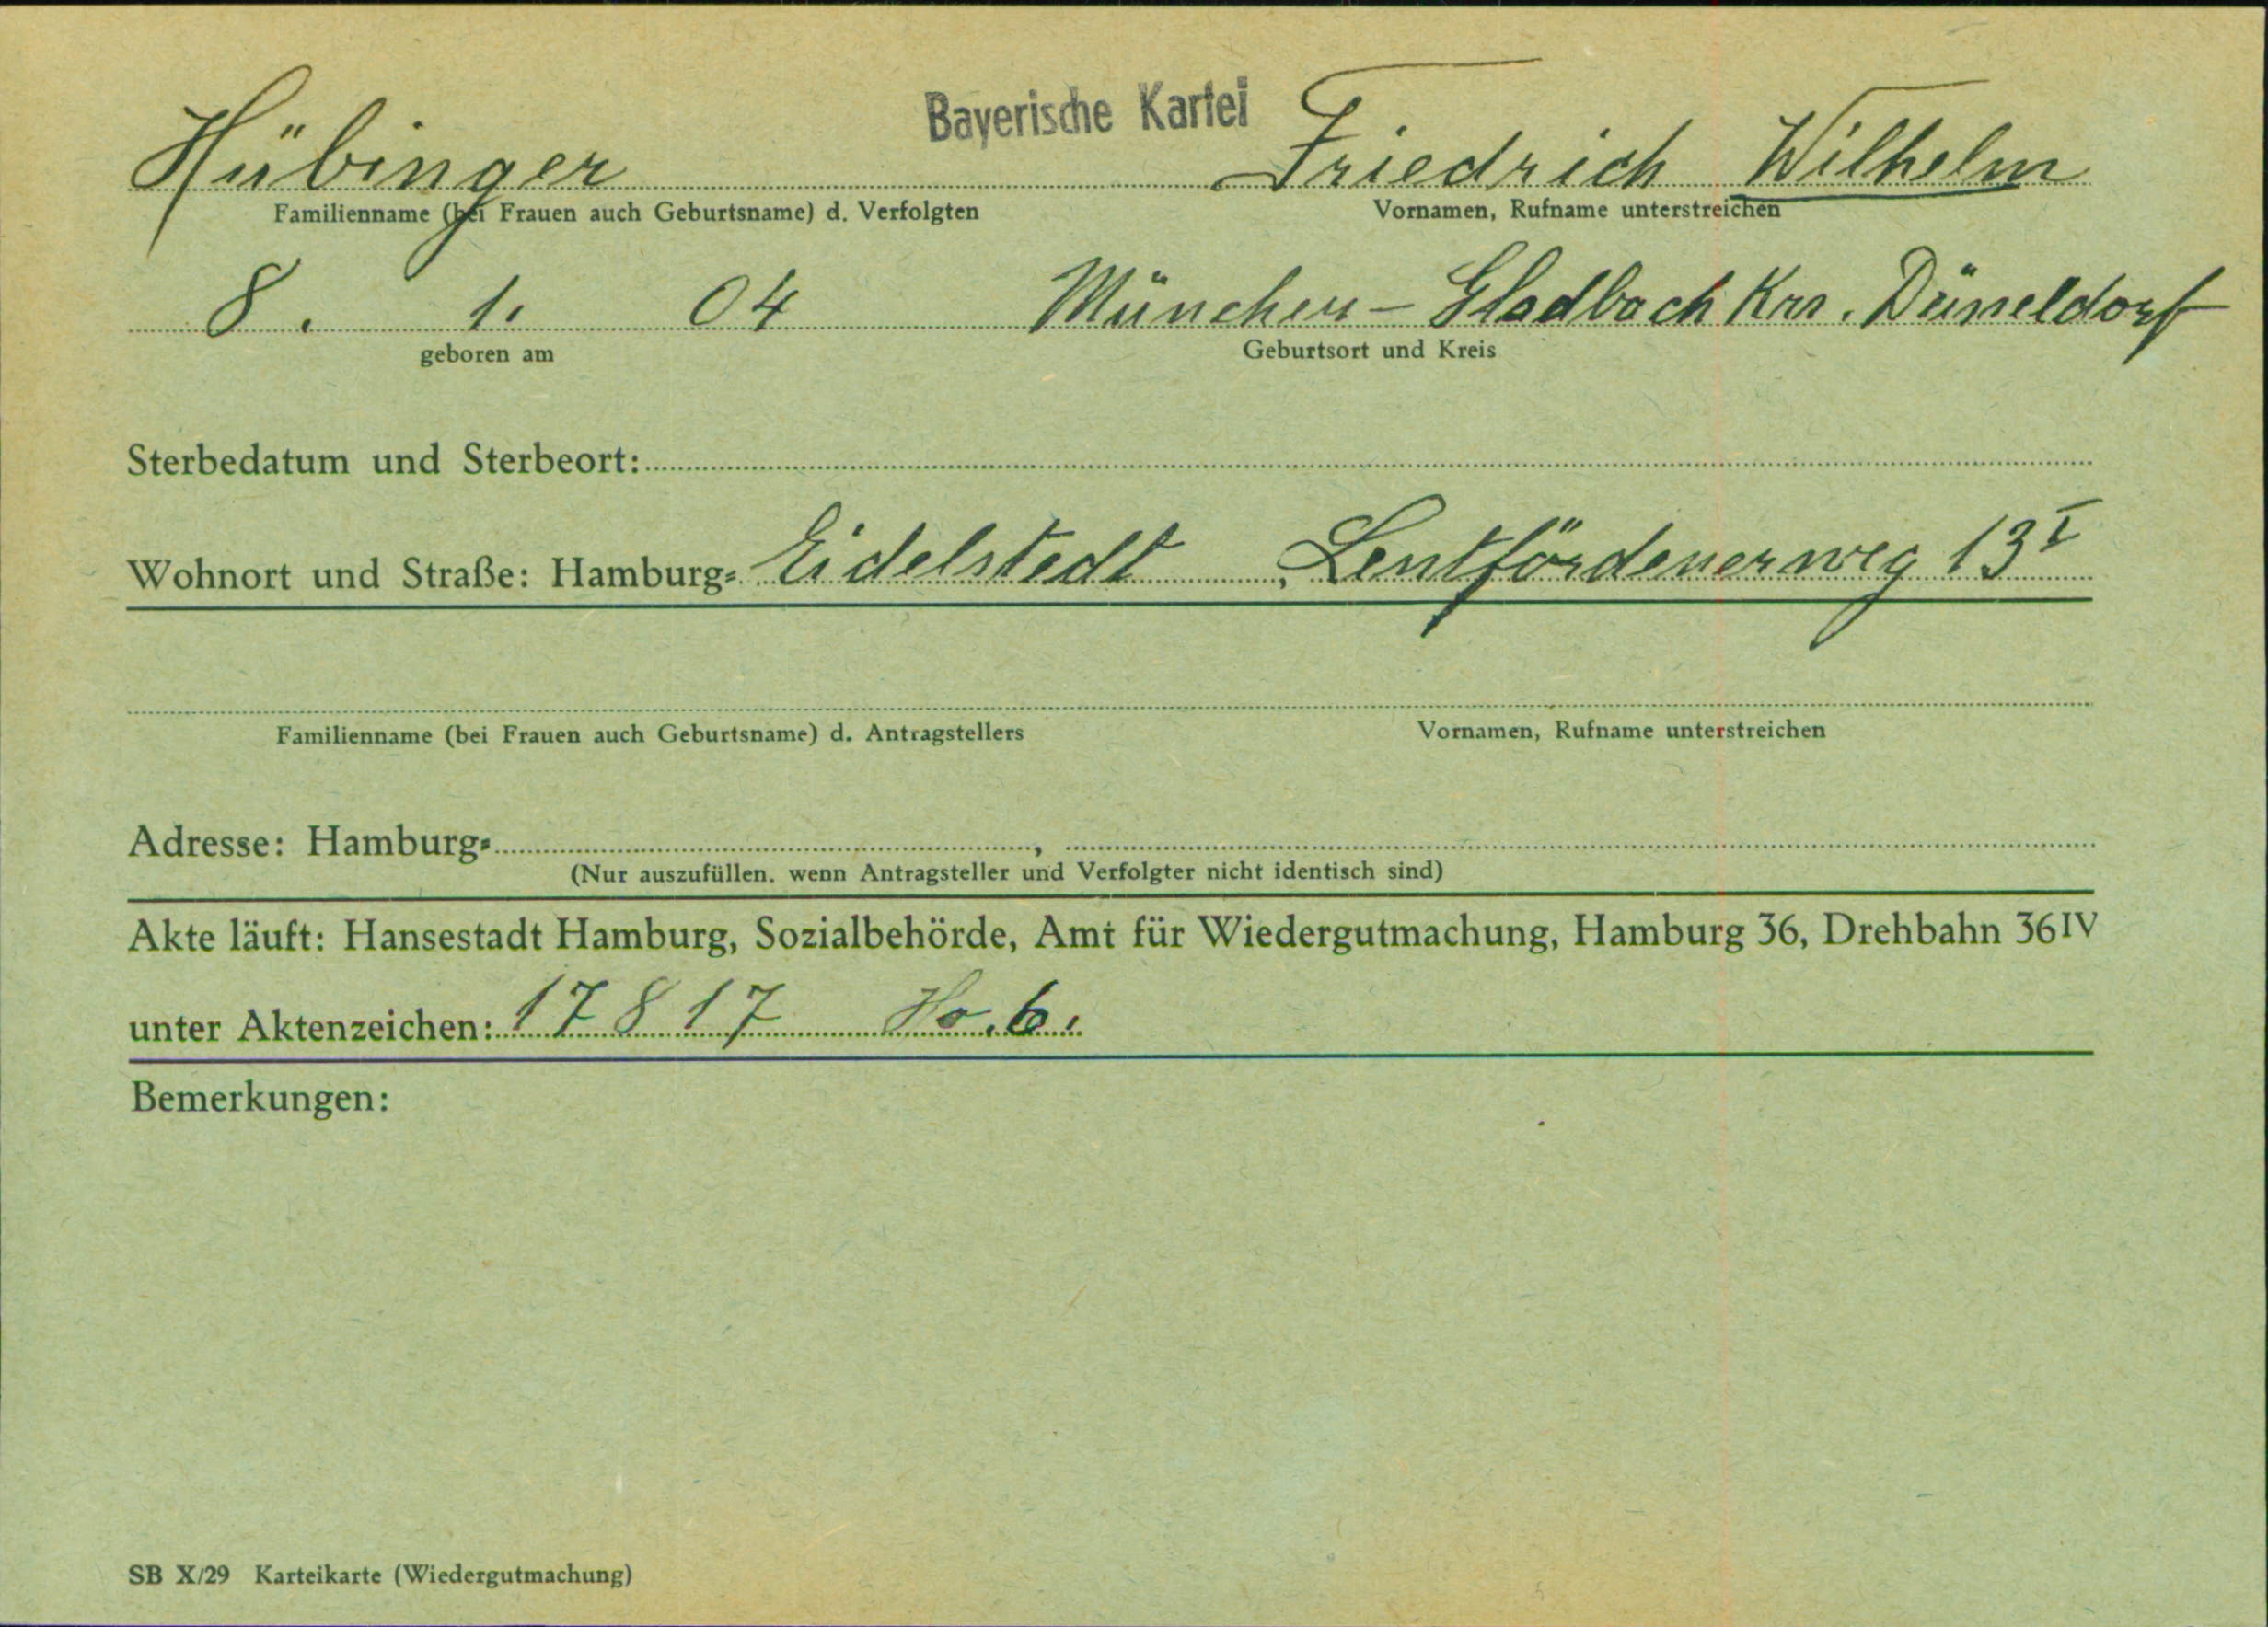 Bayerische Kartei
Hübinger Friedrich Wilhelm
Familienname (bei Frauen auch Geburtsname) d. Verfolgten Vornamen, Rufname unterstreichen
8. 1. 04 München-Gladbach Krs. Düsseldorf
geboren am Geburtsort und Kreis
Sterbedatum und Sterbeort:
Wohnort und Straße: Hamburg-Eidelstedt, Lentfördenerweg 13 I
Familienname (bei Frauen auch Geburtsname) d. Antragstellers Vornamen, Rufname unterstreichen
Adresse: Hamburg- ,
(Nur auszufüllen. wenn Antragsteller und Verfolgter nicht identisch sind)
Akte läuft: Hansestadt Hamburg, Sozialbehörde, Amt für Wiedergutmachung, Hamburg 36, Drehbahn 36 IV
unter Aktenzeichen: 17817
Bemerkungen:
SB X/29 Karteikarte (Wiedergutmachung)